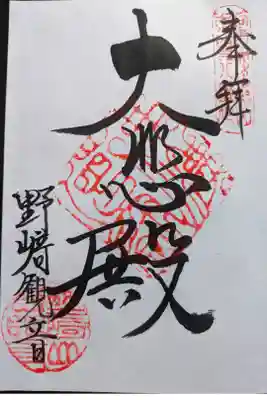 奉拝
大悲殿
野﨑観音